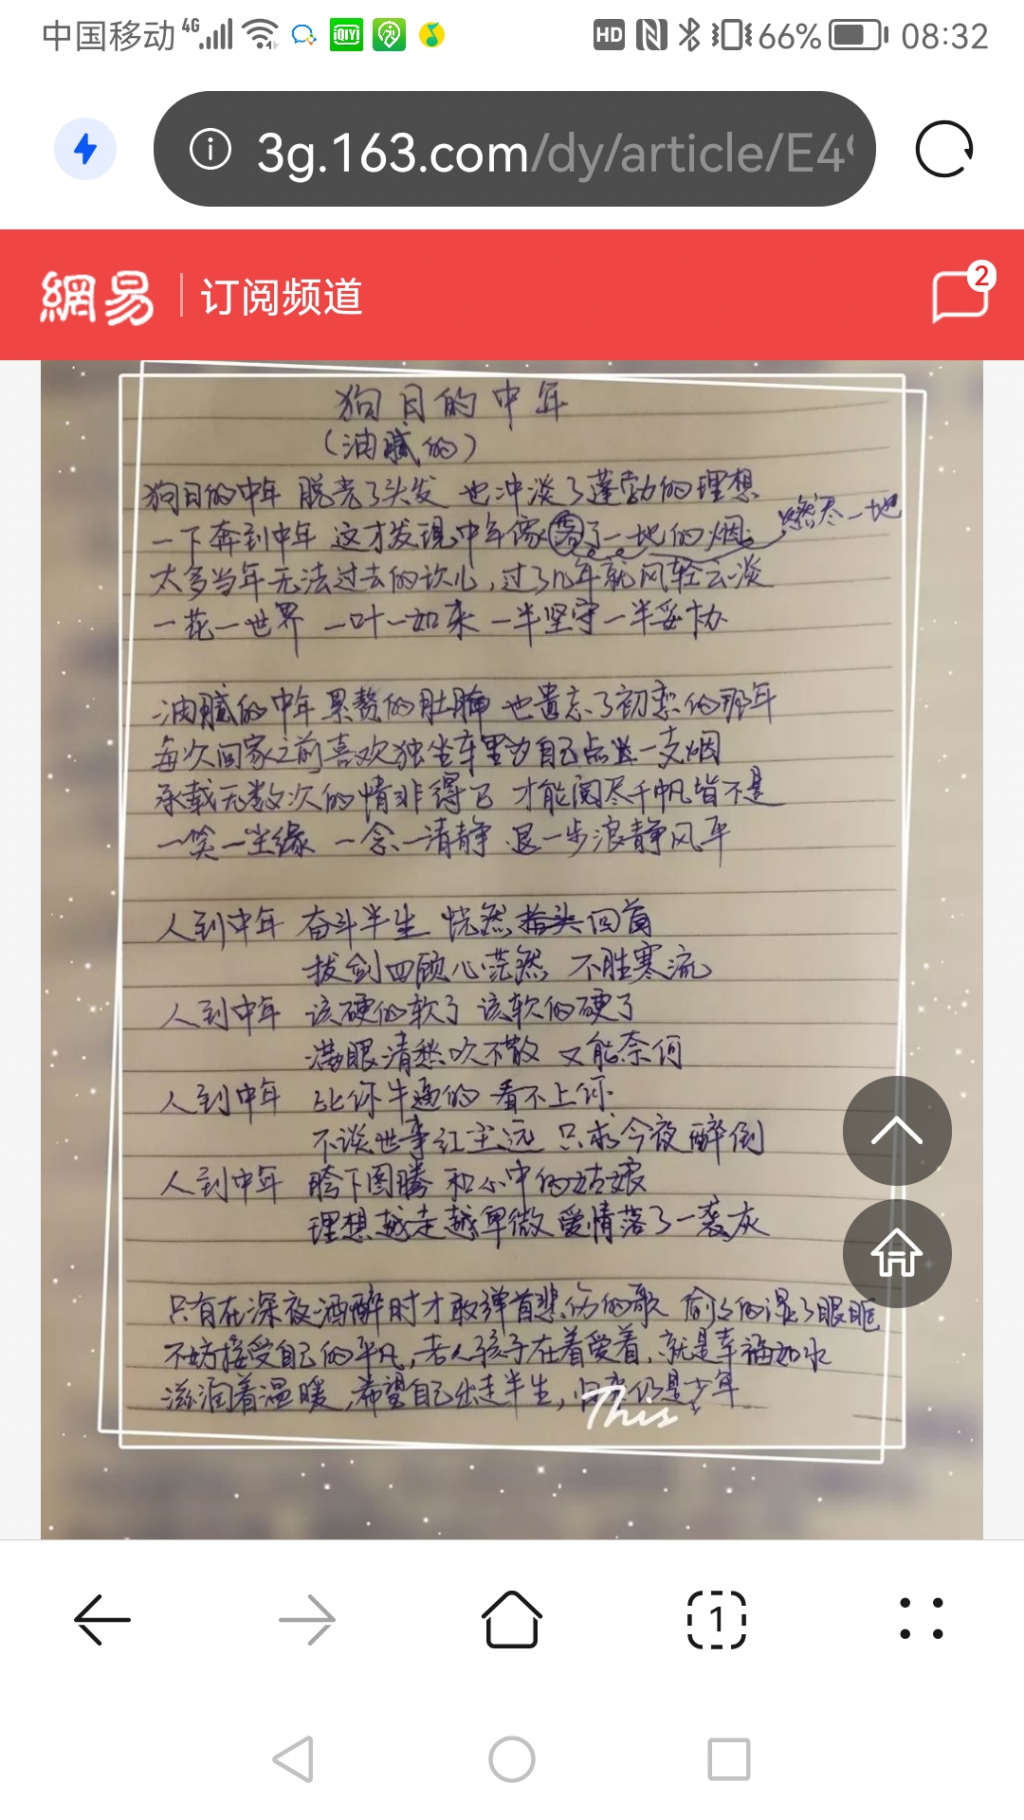 中国移动 4G HD 66% 08:32
3g.163.com/dy/article/E4
網易 订阅频道 2
狗日的中年
(油腻的)
狗日的中年 脱光了头发 也冲淡了蓬勃的理想
一下奔到中年 这才发现中年像落了一地的烟 燃尽一地
太多当年无法过去的坎儿,过了几年就风轻云淡
一花一世界 一叶一如来 一半坚守一半妥协
油腻的中年 累赘的肚腩 也遗忘了初恋的那年
每次回家之前喜欢独坐车里为自己点送一支烟
承载无数次的情非得已 才能阅尽千帆皆不是
一笑一尘缘 一念一清静 退一步浪静风平
人到中年 奋斗半生 恍然 回首
拔剑四顾心茫然 不胜寒流
人到中年 该硬的软了 该软的硬了
满眼清愁吹不散 又能奈何
人到中年 比你牛逼的 看不上你
不谈世事红尘远 只求今夜醉倒
人到中年 胯下图腾 和心中的姑娘
理想越走越卑微 爱情落了一袭灰
只有在深夜酒醉时才敢弹首悲伤的歌 偷偷的湿了眼眶
不妨接受自己的平凡,老人孩子在着爱着,就是幸福如水
滋润着温暖,希望自己出走半生,归来仍是少年
This
1